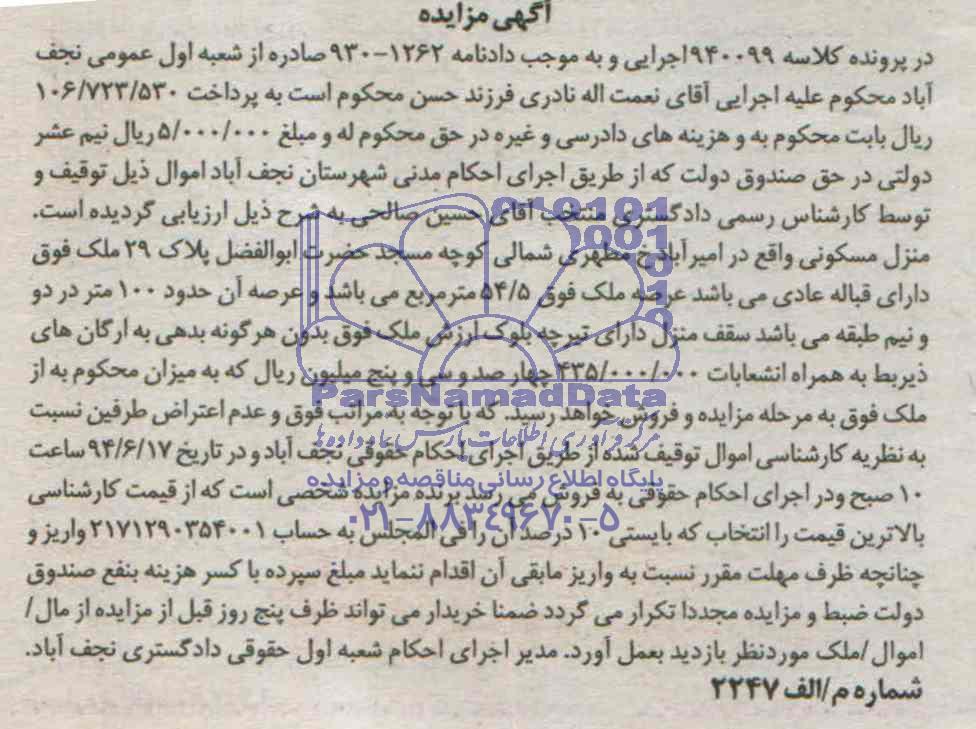 آگهی مزایده
در پرونده کلاسه ۹۴۰۰۹۹اجرایی و به موجب دادنامه ۱۲۶۲-۹۳۰ صادره از شعبه اول عمومی نجف
آباد محکوم علیه اجرایی آقای نعمت اله نادری فرزند حسن محکوم است به پرداخت ۱۰۶/۷۲۳/۵۳۰
ریال بابت محکوم به و هزینه های دادرسی و غیره در حق محکوم له و مبلغ ۵/۰۰۰/۰۰۰ ریال نیم عشر
دولتی در حق صندوق دولت که از طریق اجرای احکام مدنی شهرستان نجف آباد اموال ذیل توقیف و
توسط کارشناس رسمی دادگستری منتخب آقای حسین صالحی به شرح ذیل ارزیابی گردیده است.
منزل مسکونی واقع در امیرآباد خ مطهری شمالی کوچه مسجد حضرت ابوالفضل پلاک ۲۹ ملک فوق
دارای قباله عادی می باشد عرصه ملک فوق ۵۴/۵ مترمربع می باشد و عرصه آن حدود ۱۰۰ متر در دو
و نیم طبقه می باشد سقف منزل دارای تیرچه بلوک ارزش ملک فوق بدون هرگونه بدهی به ارگان های
ذیربط به همراه انشعابات ۴۳۵/۰۰۰/۰۰۰ چهار صد و سی و پنج میلیون ریال که به میزان محکوم به از
ParsNamadData
ملک فوق به مرحله مزایده و فروش خواهد رسید. که با توجه به مراتب فوق و عدم اعتراض طرفین نسبت
مرکز فرآوری اطلاعات پارس نماد داده ها
به نظریه کارشناسی اموال توقیف شده از طریق اجرای احکام حقوقی نجف آباد و در تاریخ ۹۴/۶/۱۷ ساعت
پایگاه اطلاع رسانی مناقصه و مزایده
۱۰ صبح ودر اجرای احکام حقوقی به فروش می رسد برنده مزایده شخصی است که از قیمت کارشناسی
۰۲۱-۸۸۳۴۹۶۷۰-۵
بالاترین قیمت را انتخاب که بایستی ۱۰ درصد آن را فی المجلس به حساب ۲۱۷۱۲۹۰۳۵۴۰۰۱ واریز و
چنانچه ظرف مهلت مقرر نسبت به واریز مابقی آن اقدام ننماید مبلغ سپرده با کسر هزینه بنفع صندوق
دولت ضبط و مزایده مجددا تکرار می گردد ضمنا خریدار می تواند ظرف پنج روز قبل از مزایده از مال/
اموال/ملک موردنظر بازدید بعمل آورد. مدیر اجرای احکام شعبه اول حقوقی دادگستری نجف آباد.
شماره م/الف ۲۲۴۷